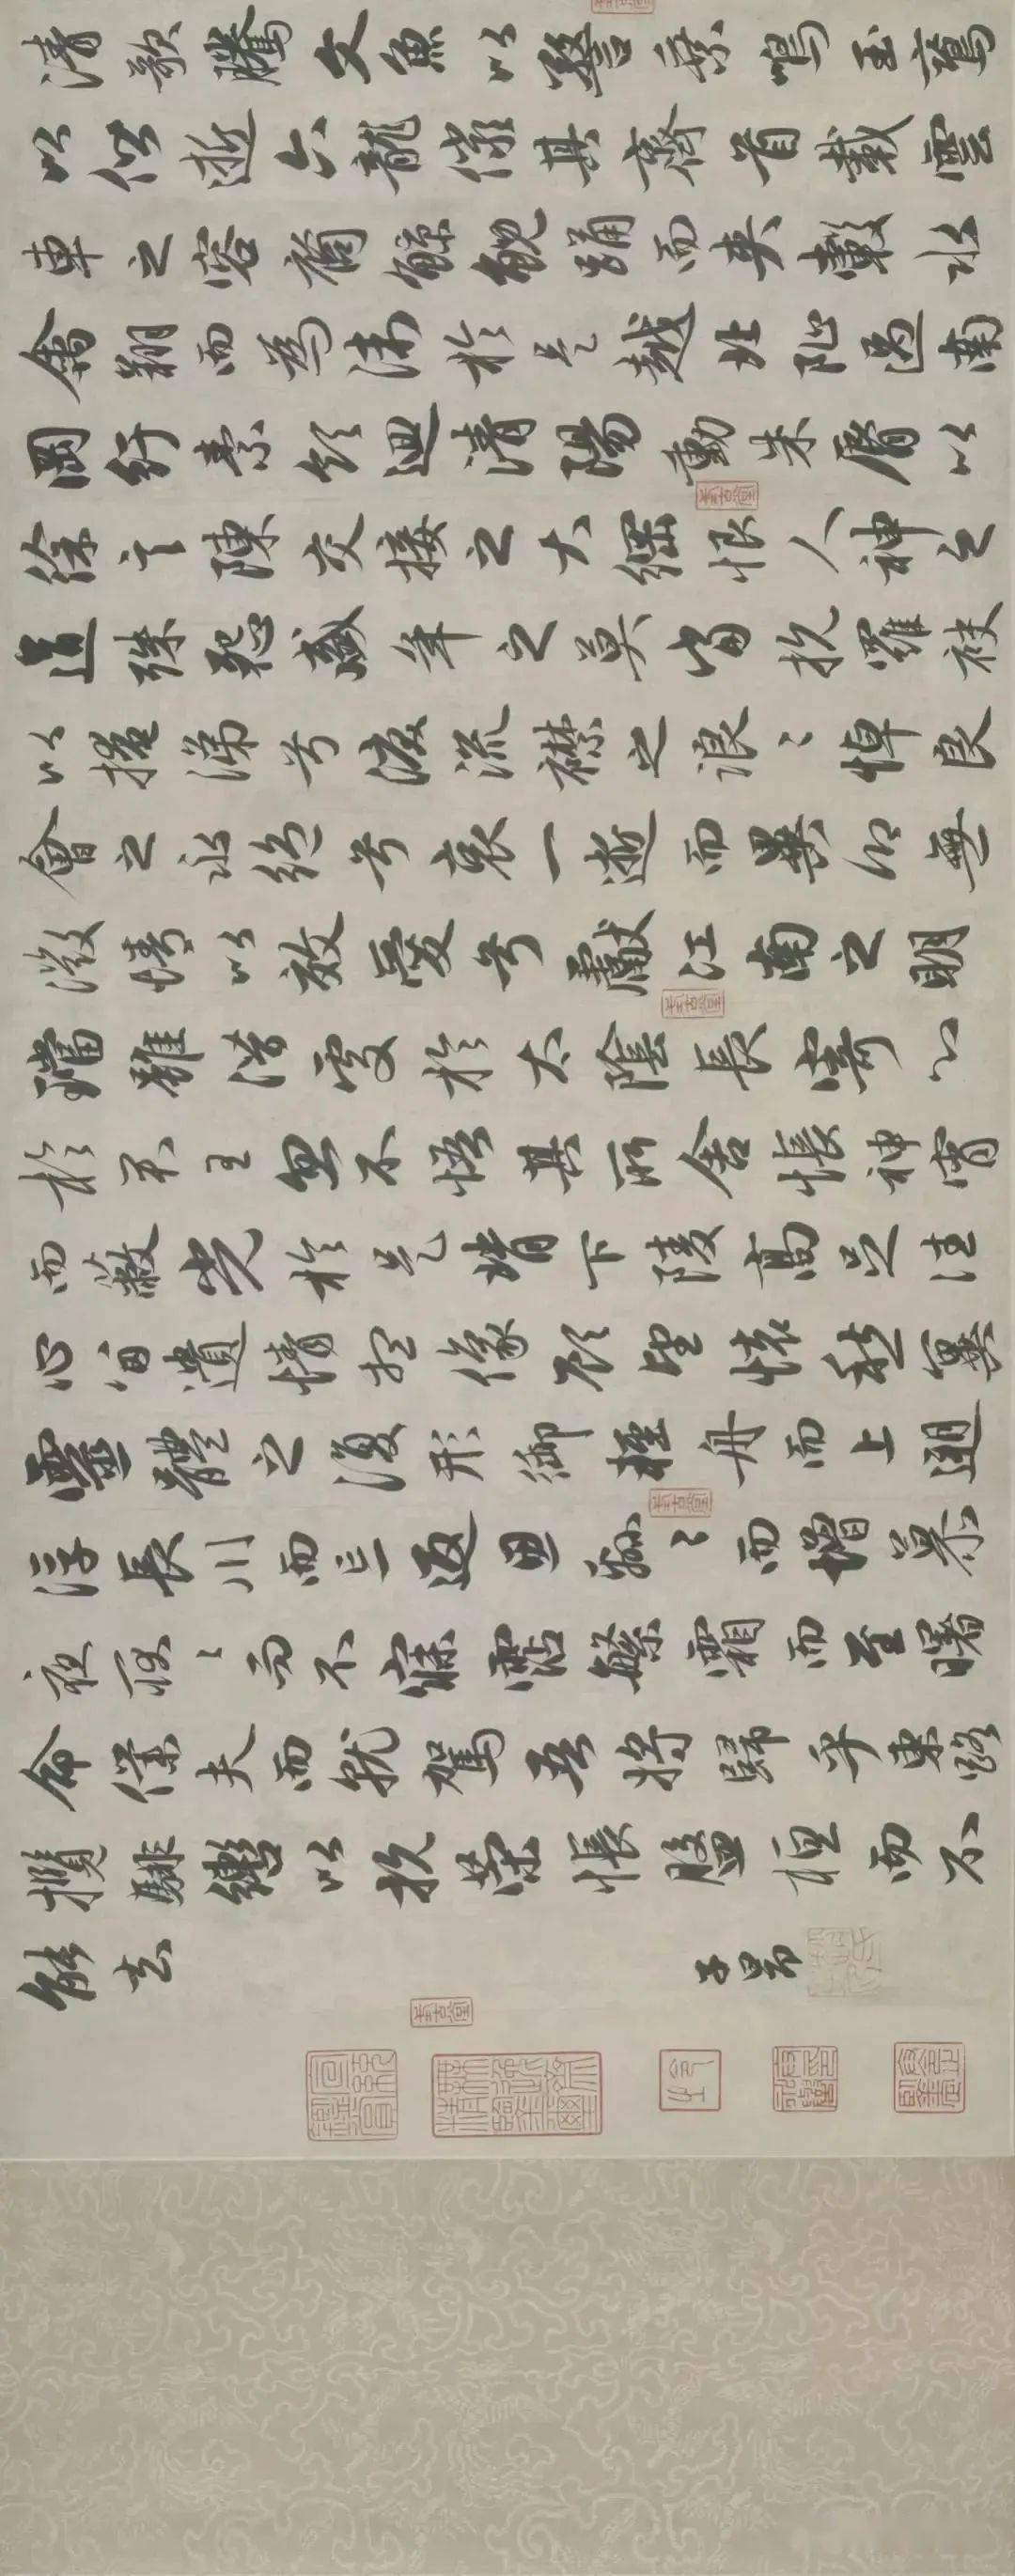 清歌騰文魚以警乗鳴玉鸞
以偕逝六龍儼其齊首載雲
車之容裔鯨鯢踊而夾轂水
禽翔而為衛於是越北沚過南
岡紆素領迴清陽動朱脣以
徐言陳交接之大綱恨人神之
道殊怨盛年之莫當抗羅袂
以掩涕兮淚流襟之浪〻悼良
會之永絶兮哀一逝而異鄉無
微情以效愛兮獻江南之明
璫雖潛處於太陰長寄心
於君王忽不悟其所舍悵神宵
而蔽光於是背下陵高足往
心留遺情想像顧望懷愁冀
靈體之復形御輕舟而上遡
浮長川而忘返思緜〻而增慕
夜耿〻而不寐霑繁霜而至曙
命僕夫而就駕吾將歸乎東路
攬騑轡以抗策悵盤桓而不
能去
子昂